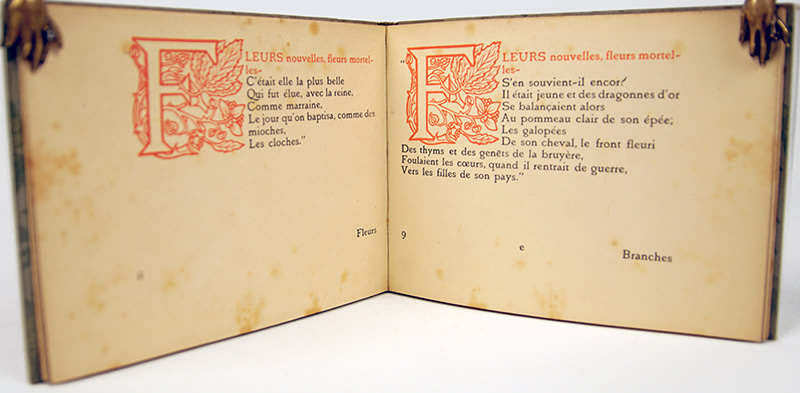 FLEURS nouvelles, fleurs mortel-
les-
C'était elle la plus belle
Qui fut élue, avec la reine,
Comme marraine,
Le jour qu'on baptisa, comme des
mioches,
Les cloches."
Fleurs
8
"FLEURS nouvelles, fleurs mortel-
les-
S'en souvient-il encor!
Il était jeune et des dragonnes d'or
Se balançaient alors
Au pommeau clair de son épée;
Les galopées
De son cheval, le front fleuri
Des thyms et des genêts de la bruyère,
Foulaient les cœurs, quand il rentrait de guerre,
Vers les filles de son pays."
9
e
Branches